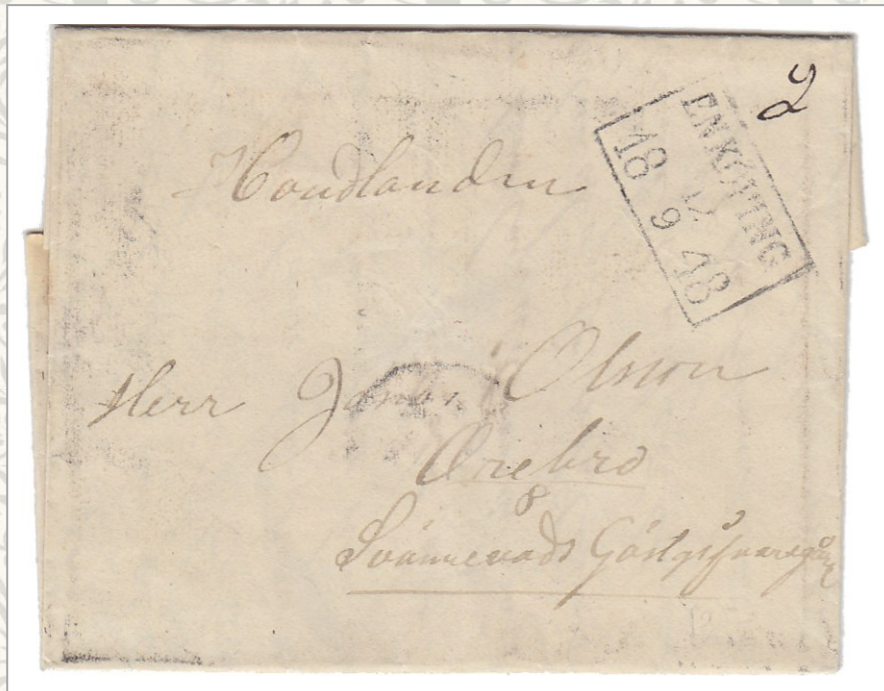 2
ENKÖPING
12
18 9 48
Handlanden
Herr Jonas Olsson
Örebro
8
Svännevads Gästgifvaregård